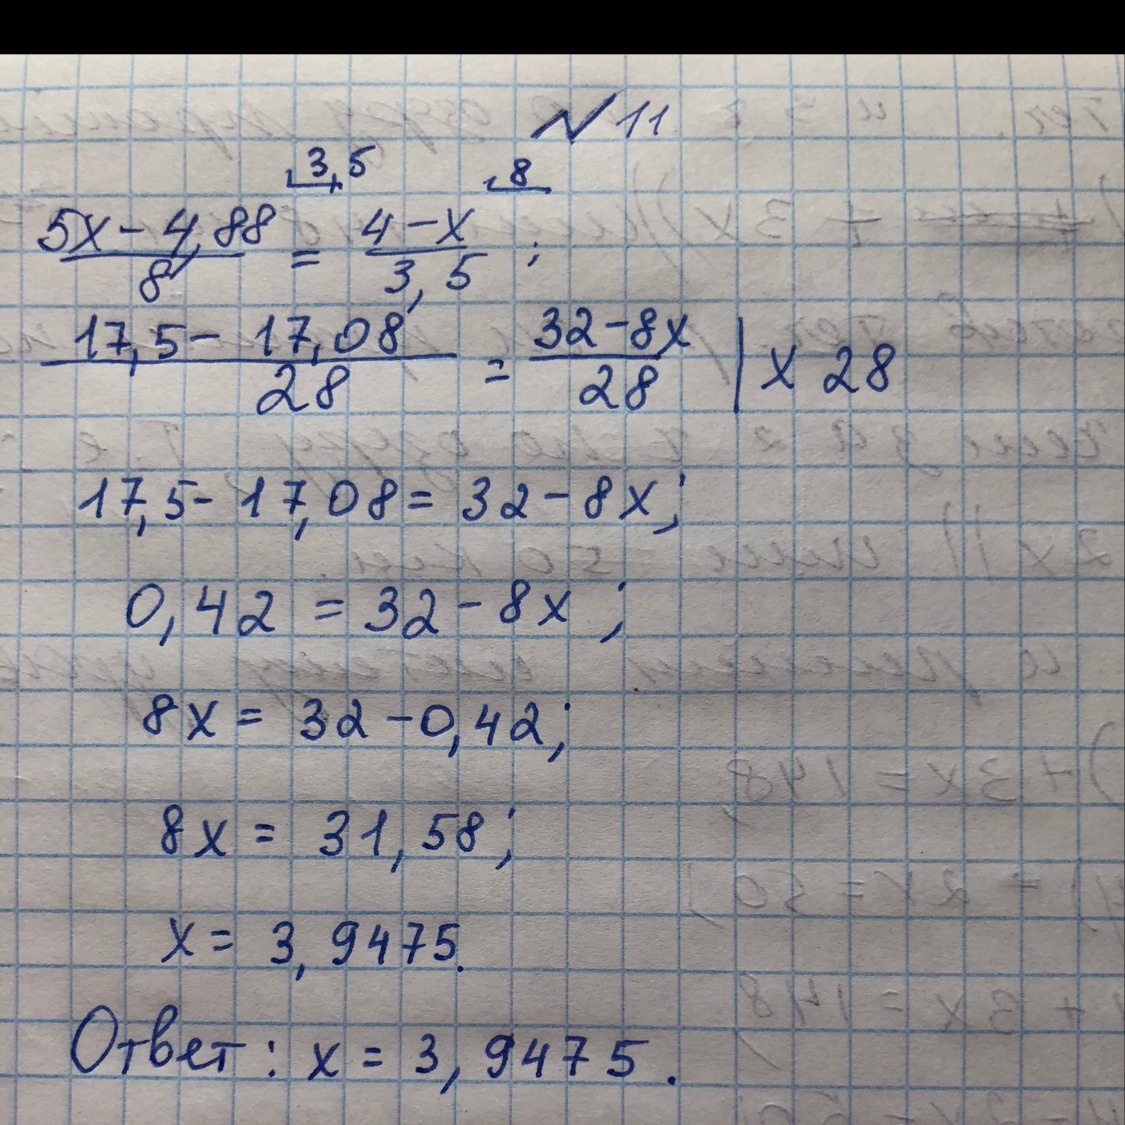 № 11
3,5 8
5x - 4,88 / 8 = 4 - x / 3,5 ;
17,5 - 17,08 / 28 = 32 - 8x / 28 | x 28
17,5 - 17,08 = 32 - 8x;
0,42 = 32 - 8x ;
8x = 32 - 0,42;
8x = 31,58;
x = 3,9475.
Ответ: x = 3,9475.